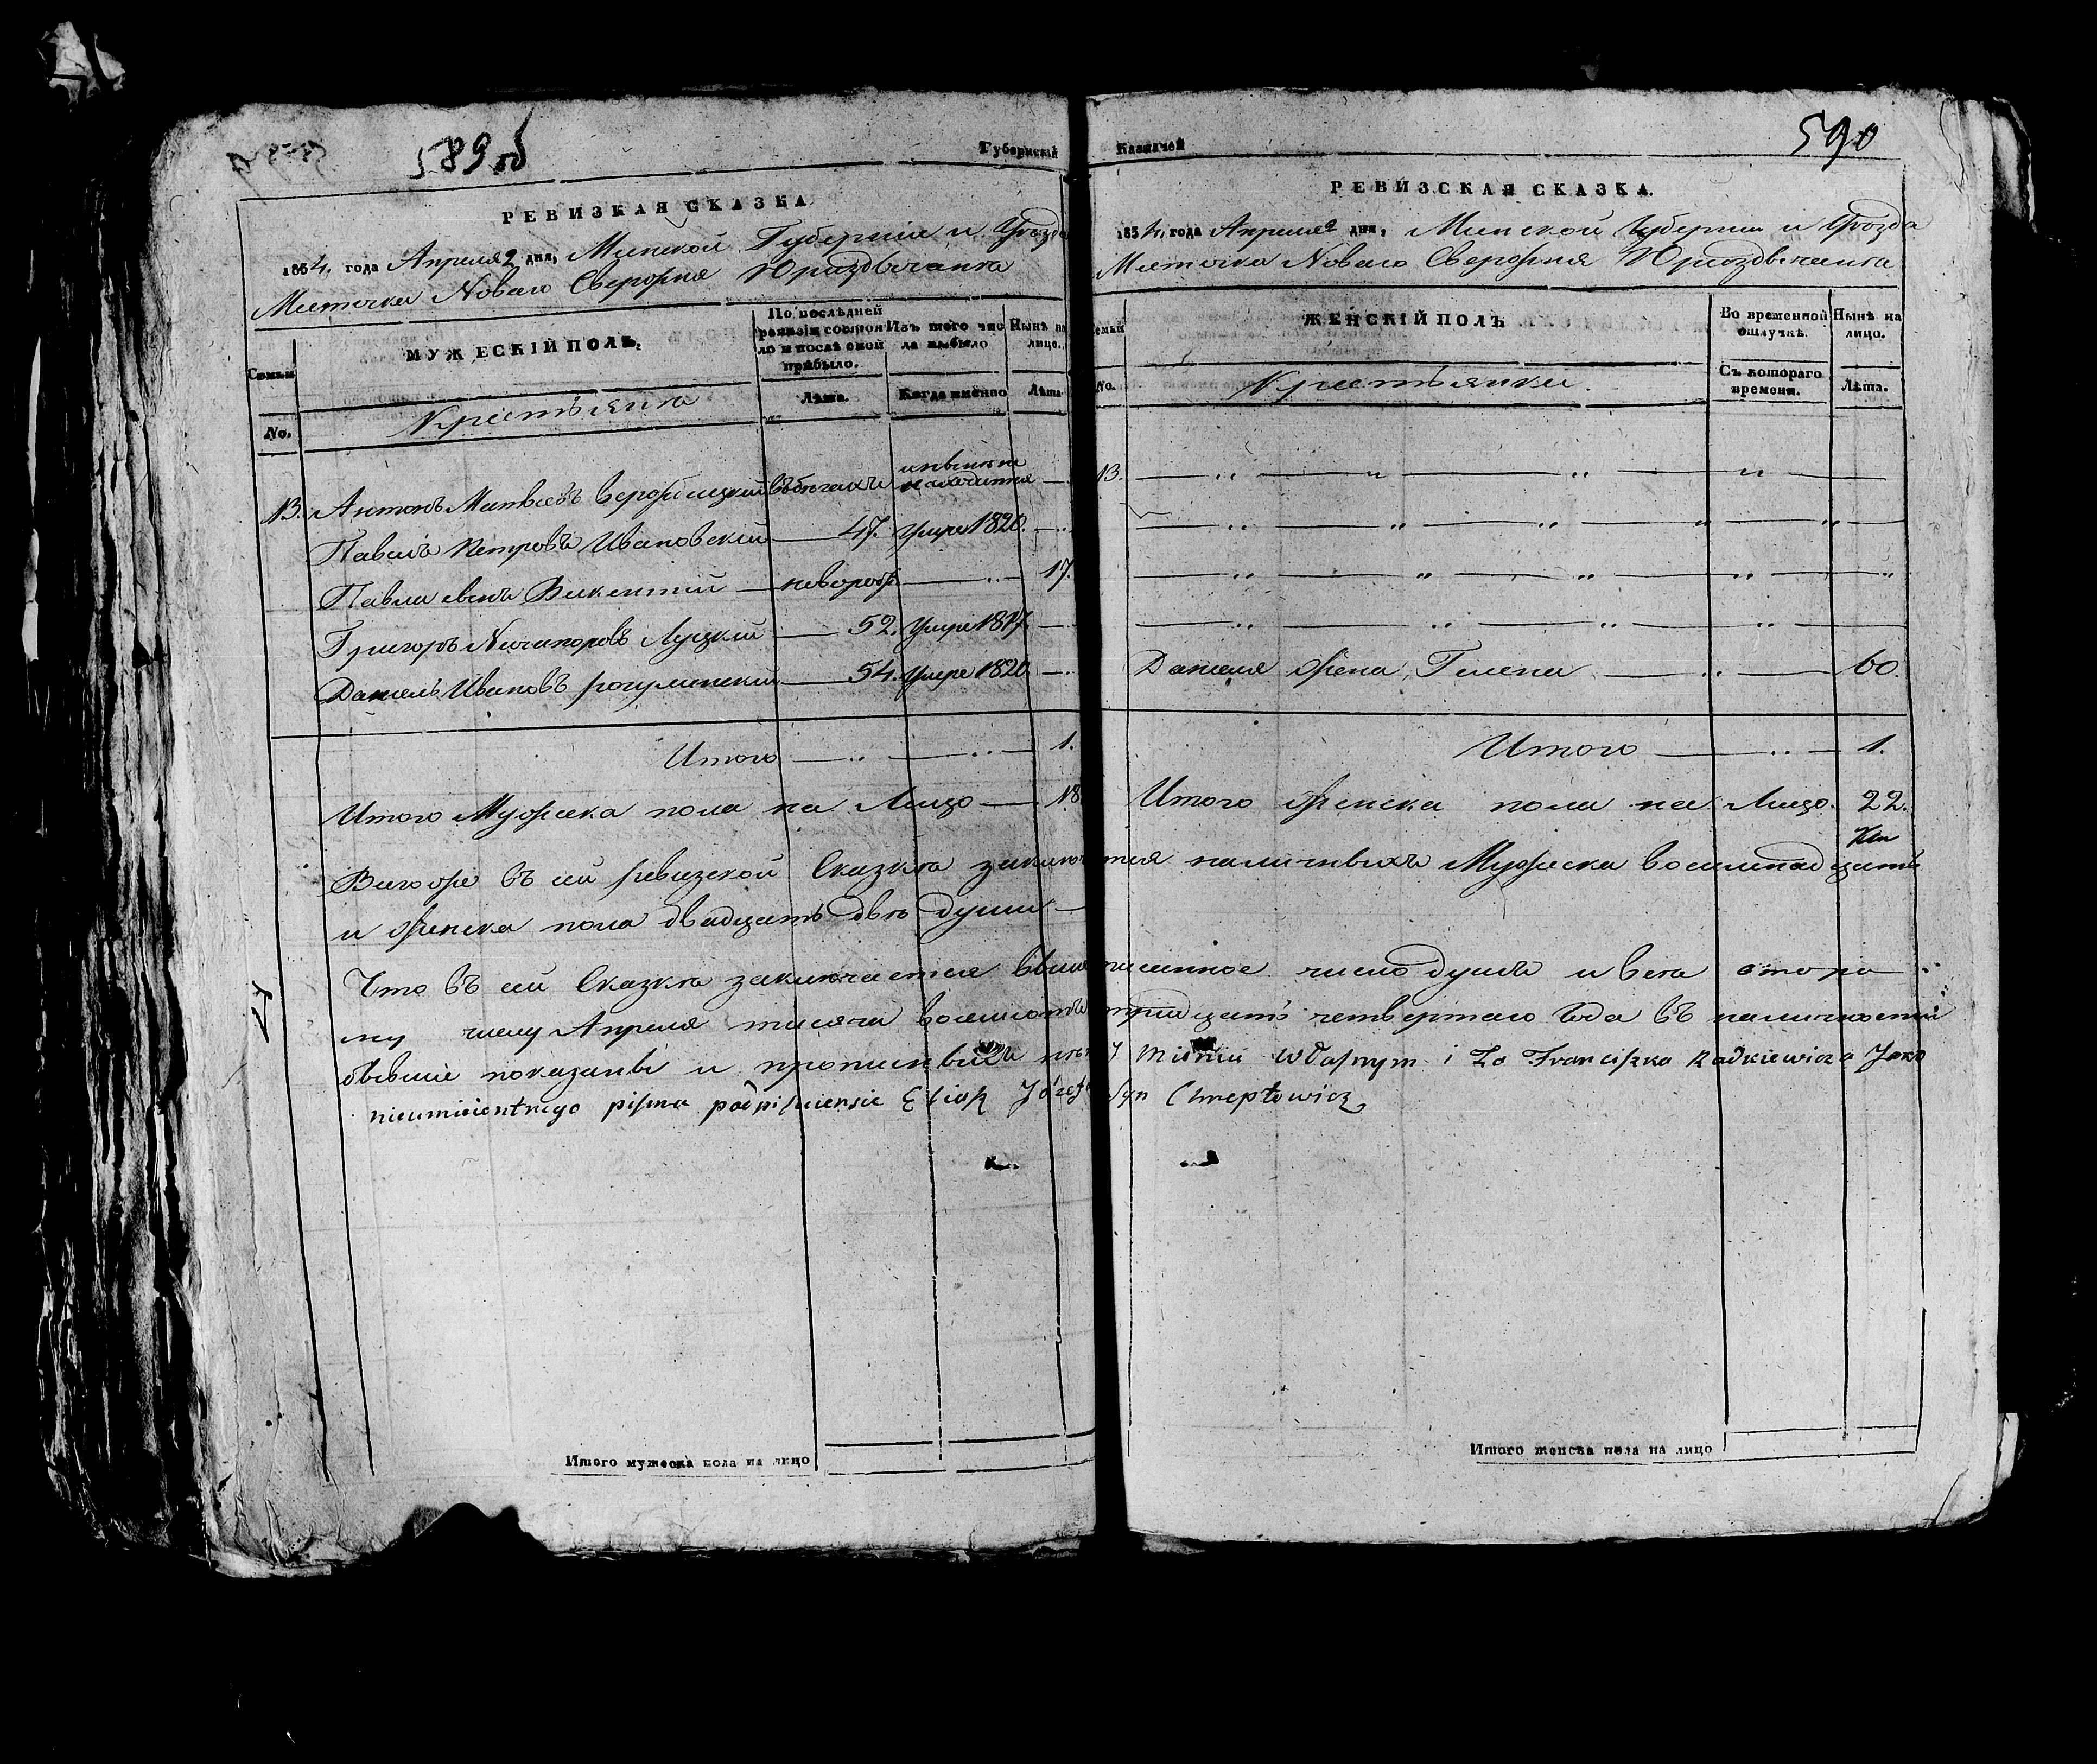 589 об
Губернскій
РЕВИЗКАЯ СКАЗКА
1834. года Апреля 2 дня, Минской Губернии и Уѣзда
Мѣстечка Новаго Свержня Юриздычанка
Семьи
МУЖЕСКІЙ ПОЛЪ,
По последней ревизіи состояло и послѣ оной прибыло.
Изъ того числа выбыло
Нынѣ на лицо.
No.
Крестьяне
Лѣта.
Когда имянно
Лѣта
13. Антонъ Матвеевъ въ бегахъ
Павелъ Петровъ Ивановскій 47. Умре 1820.
Павла сынъ Викентій новорож. 17.
Григоръ Ничипоровъ Луцкій 52. Умре 1817
Данель Ивановъ 54. Умре 1820
Итого 1.
Итого Мужеска пола на Лицо 18
Казначей
590
РЕВИЗСКАЯ СКАЗКА.
1834, года Апреля 2 дня, Минской Губернии и Уѣзда
Мѣстечка Новаго Свержня Юриздычанка
Семьи
ЖЕНСКІЙ ПОЛЪ
Во временной отлучкѣ.
Нынѣ на лицо.
No.
Крестьянки
Съ котораго времени.
Лѣта.
13.
Данеля жена Гелена 60.
Итого 1.
Итого женска пола на Лицо. 22.
Всего же въ сей ревизской Сказкѣ заключается наличныхъ Мужеска восемнадцать
и женска пола двадцать двѣ души
Что въ сей Сказкѣ заключается вышеписанное число душъ и всѣ второ
му числу Апреля тысяча восемьсотъ тридцать четвертаго Года въ наличности
бывшіе показаны и прописныхъ нѣтъ W Imieniu własnym i Za Franciszka Radkiewicza Jako
nieumieiontnego pisma podpisuiensie Eliasz Józefa Syn Chreptowicz
Итого мужеска пола на лицо
Итого женска пола на лицо